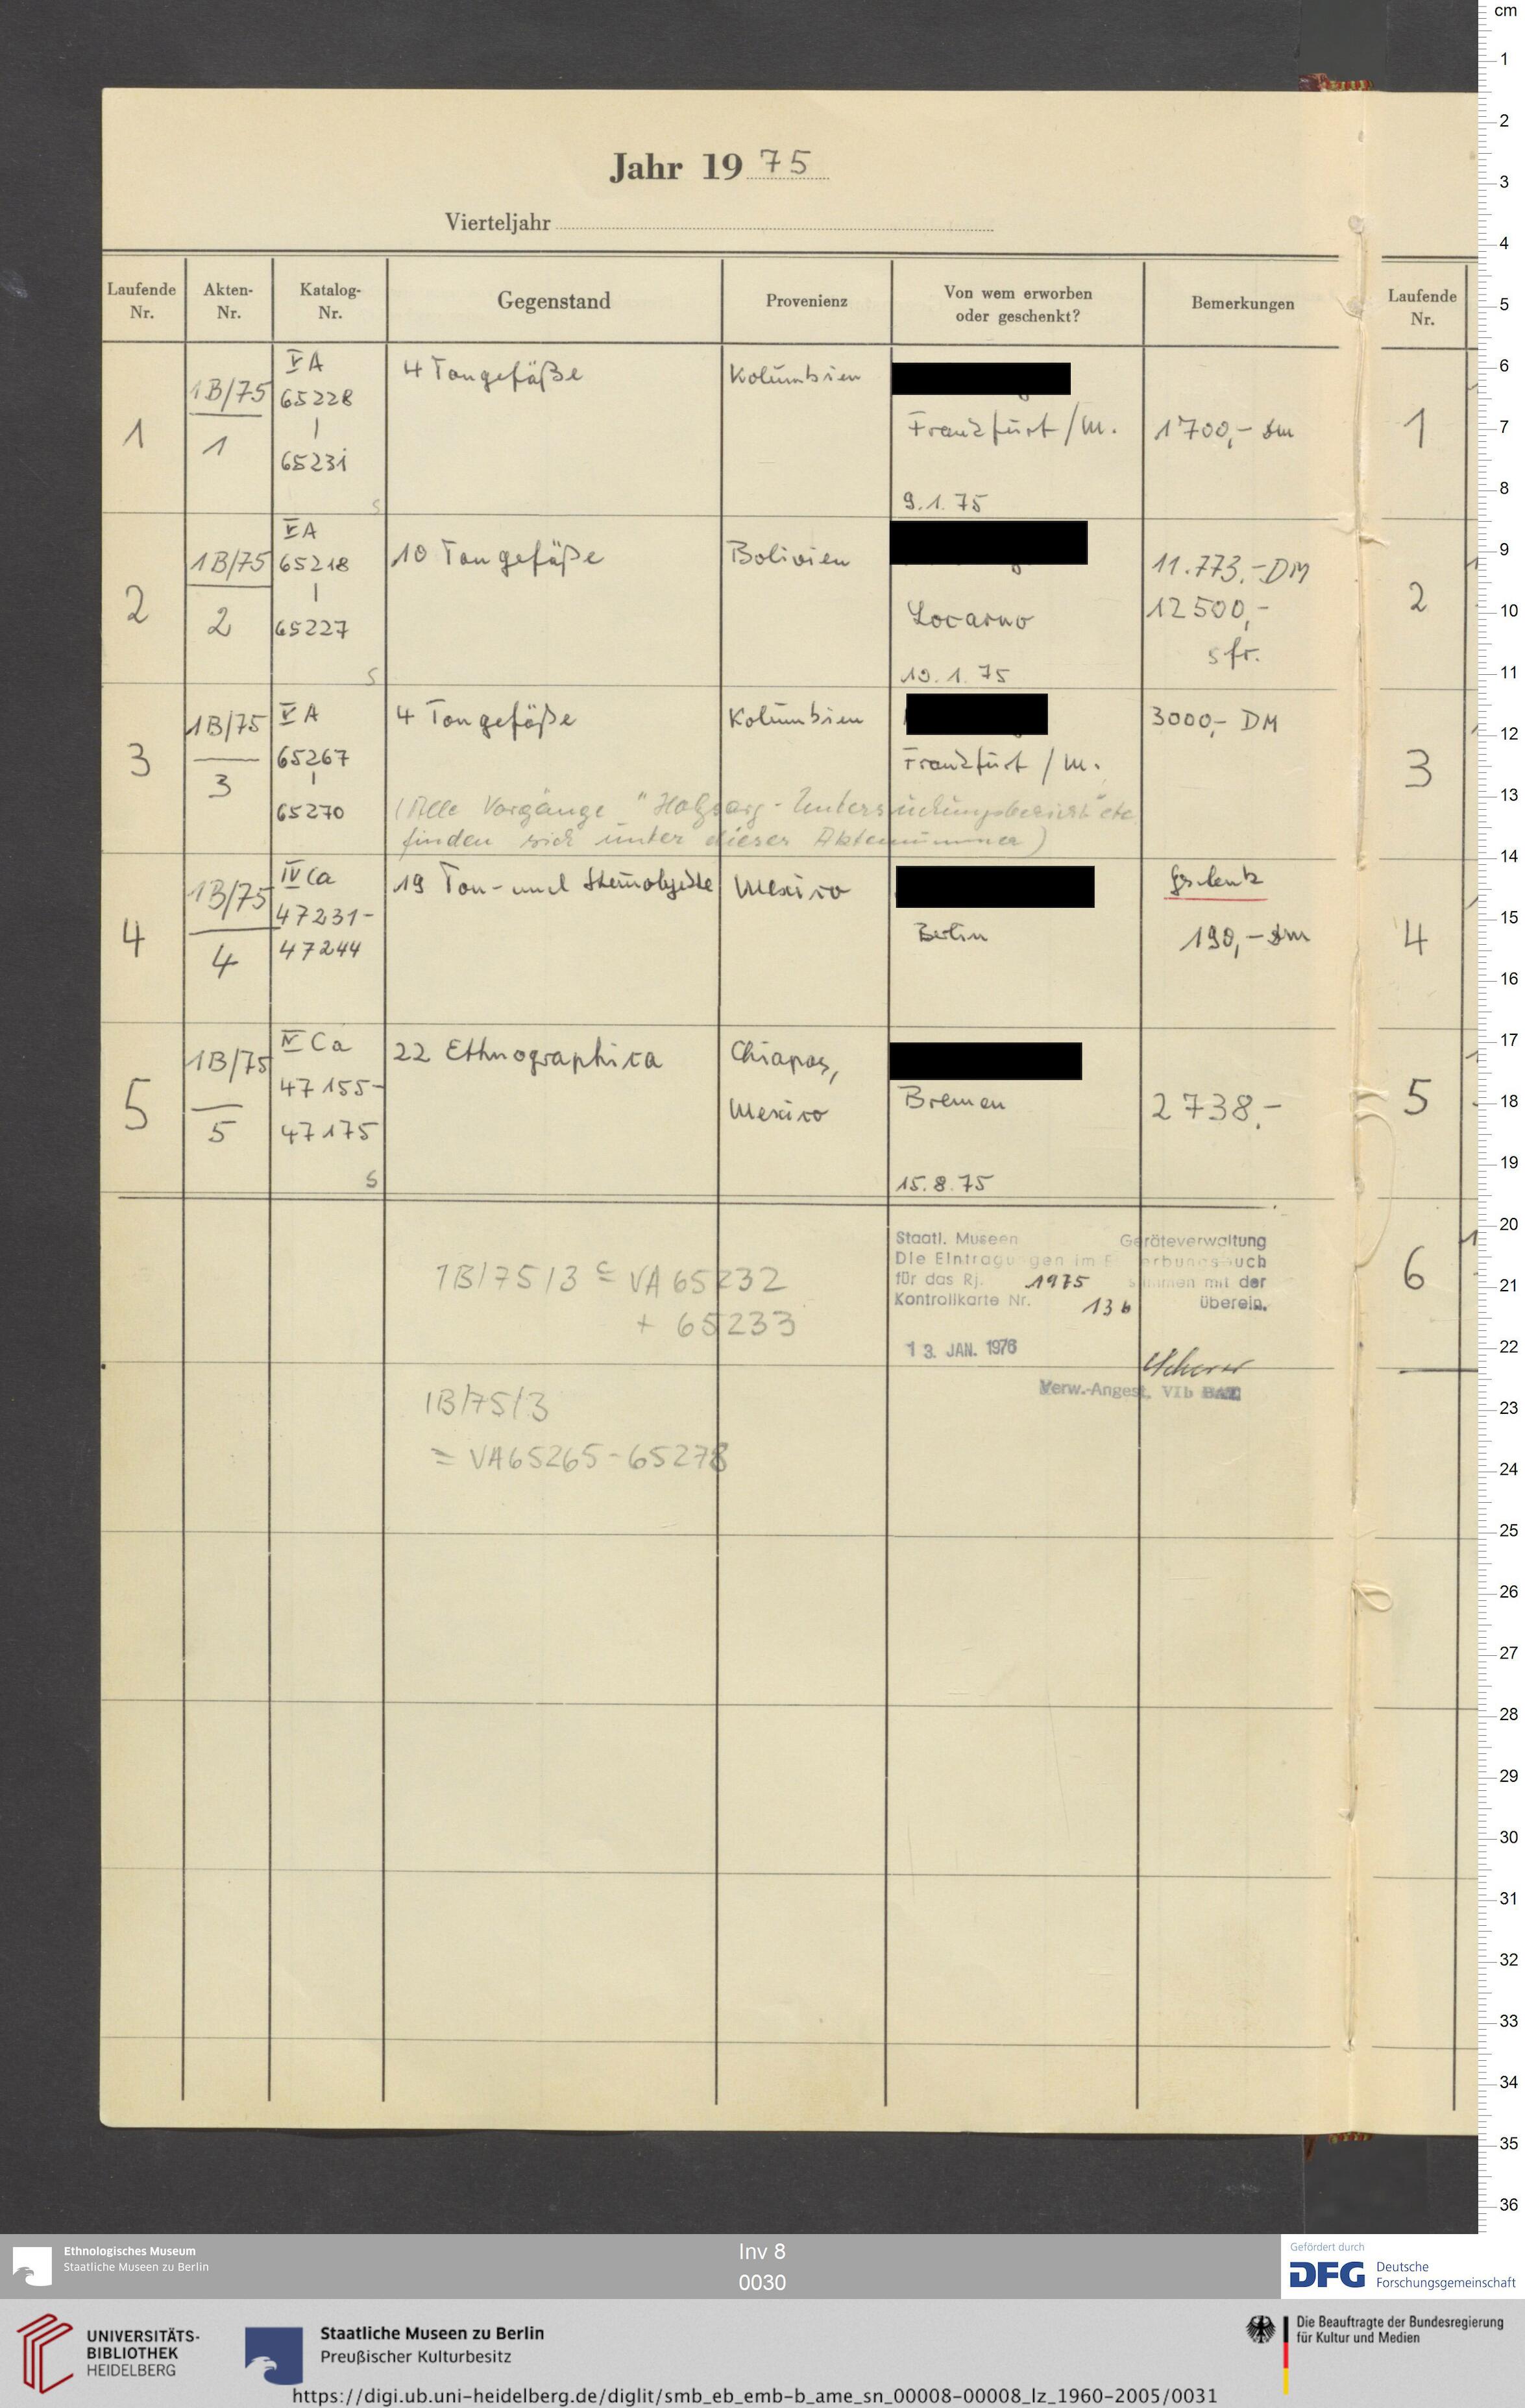 Jahr 1975
Vierteljahr
Laufende Nr.
Akten-Nr.
Katalog-Nr.
Gegenstand
Provenienz
Von wem erworben oder geschenkt?
Bemerkungen
Laufende Nr.
1
1B/75
1
V A
65228
|
65231
s
4 Tongefäße
Kolumbien
Frankfurt/M.
9.1.75
1700,- DM
1
2
1B/75
2
V A
65218
|
65227
s
10 Tongefäße
Bolivien
Locarno
19.1.75
11.773.- DM
12500,-
sfr.
2
3
1B/75
3
V A
65267
|
65270
4 Tongefäße
Kolumbien
Frankfurt/M.
3000,- DM
(Alle Vorgänge "Holzsarg-Untersuchungsbericht" etc.
finden sich unter dieser Aktennummer)
3
4
1B/75
4
IV Ca
47231-
47244
19 Ton- und Steinobjekte
Mexico
Berlin
Geschenk
190,- DM
4
5
1B/75
5
IV Ca
47155-
47175
s
22 Ethnographica
Chiapas,
Mexico
Bremen
15.8.75
2738.-
5
1B/75/3 = VA 65232
+ 65233
Staatl. Museen Geräteverwaltung
Die Eintragungen im Erwerbungsbuch
für das Rj. 1975 stimmen mit der
Kontrollkarte Nr. 13b überein.
13. JAN. 1976
Verw.-Angest. VIb BAT
6
1B/75/3
= VA65265-65278
cm
1
2
3
4
5
6
7
8
9
10
11
12
13
14
15
16
17
18
19
20
21
22
23
24
25
26
27
28
29
30
31
32
33
34
35
36
Ethnologisches Museum
Staatliche Museen zu Berlin
Inv 8
0030
Gefördert durch
DFG Deutsche
Forschungsgemeinschaft
UNIVERSITÄTS-
BIBLIOTHEK
HEIDELBERG
Staatliche Museen zu Berlin
Preußischer Kulturbesitz
Die Beauftragte der Bundesregierung
für Kultur und Medien
https://digi.ub.uni-heidelberg.de/diglit/smb_eb_emb-b_ame_sn_00008-00008_lz_1960-2005/0031